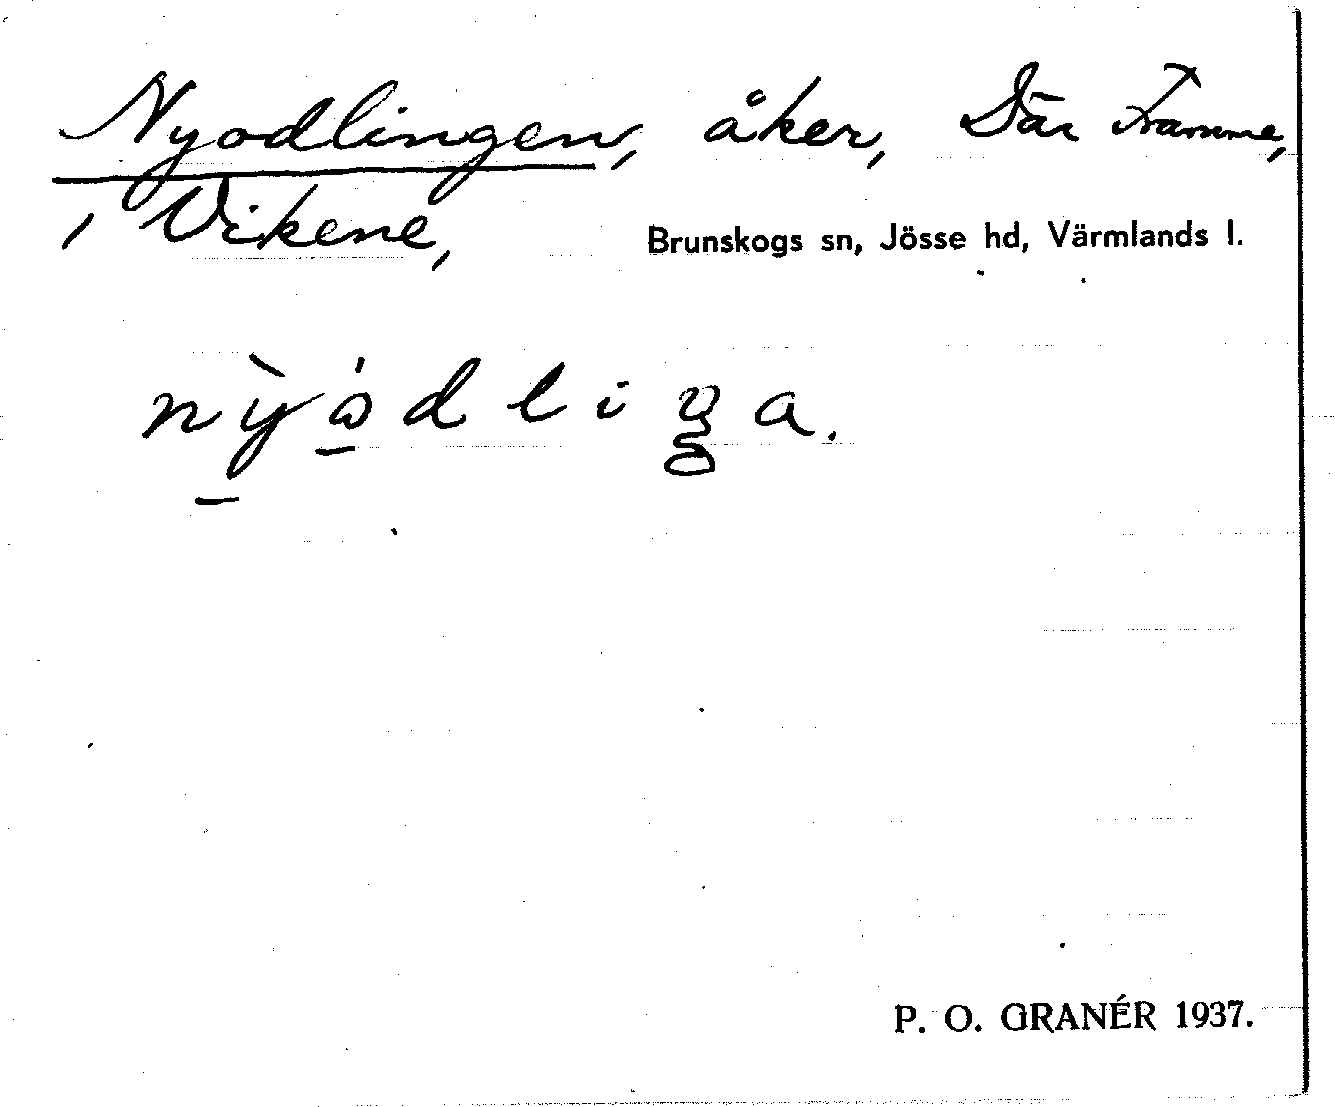 Nyodlingen, åker, Där Framme,
i Vikene, Brunskogs sn, Jösse hd, Värmlands l.
P. O. GRANÉR 1937.